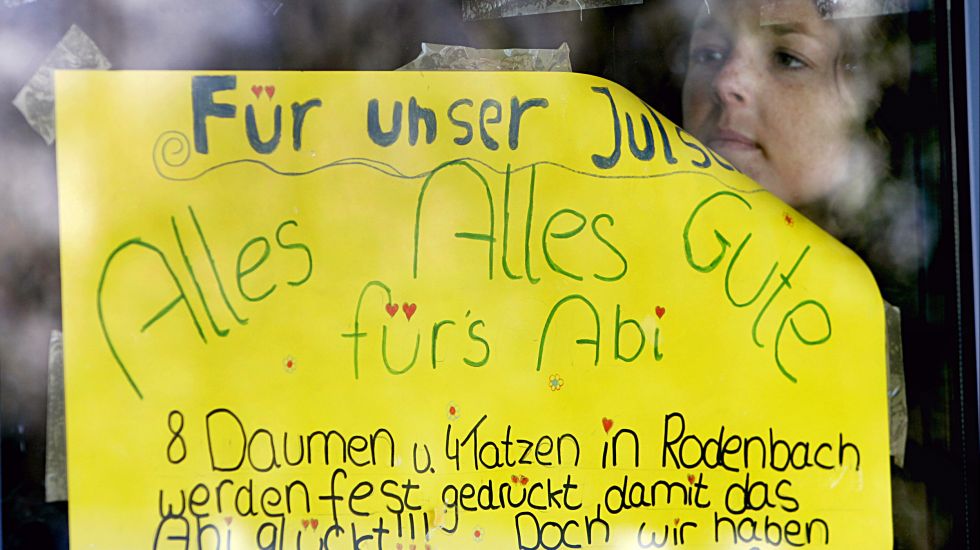 Für unser
Alles Alles Gute
für's Abi
8 Daumen u. 4 Tatzen in Rodenbach
werden fest gedrückt damit das
Abi glückt!!! Doch wir haben